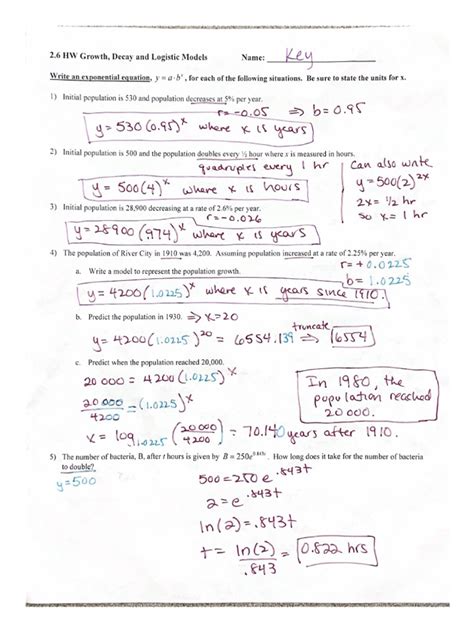 2.6 HW Growth, Decay and Logistic Models Name: Key
Write an exponential equation, y = a·bˣ, for each of the following situations. Be sure to state the units for x.
1) Initial population is 530 and population decreases at 5% per year.
r = -0.05 ⇒ b = 0.95
y = 530(0.95)ˣ where x is years
2) Initial population is 500 and the population doubles every ½ hour where x is measured in hours.
quadruples every 1 hr
y = 500(4)ˣ where x is hours
Can also write
y = 500(2)²ˣ
2x = ½ hr
so x = 1 hr
3) Initial population is 28,900 decreasing at a rate of 2.6% per year.
r = -0.026
y = 28900(.974)ˣ where x is years
4) The population of River City in 1910 was 4,200. Assuming population increased at a rate of 2.25% per year.
r = +0.0225
b = 1.0225
a. Write a model to represent the population growth.
y = 4200(1.0225)ˣ where x is years since 1910.
b. Predict the population in 1930. ⇒ x = 20
y = 4200(1.0225)²⁰ = 6554.139 truncate ⇒ 6554
c. Predict when the population reached 20,000.
20000 = 4200(1.0225)ˣ
20000/4200 = (1.0225)ˣ
x = log₁.₀₂₂₅(20000/4200) = 70.140 years after 1910.
In 1980, the
population reached
20000.
5) The number of bacteria, B, after t hours is given by B = 250e^0.843t. How long does it take for the number of bacteria
to double?
y = 500
500 = 250 e^.843t
2 = e^.843t
ln(2) = .843t
t = ln(2)/.843 = 0.822 hrs